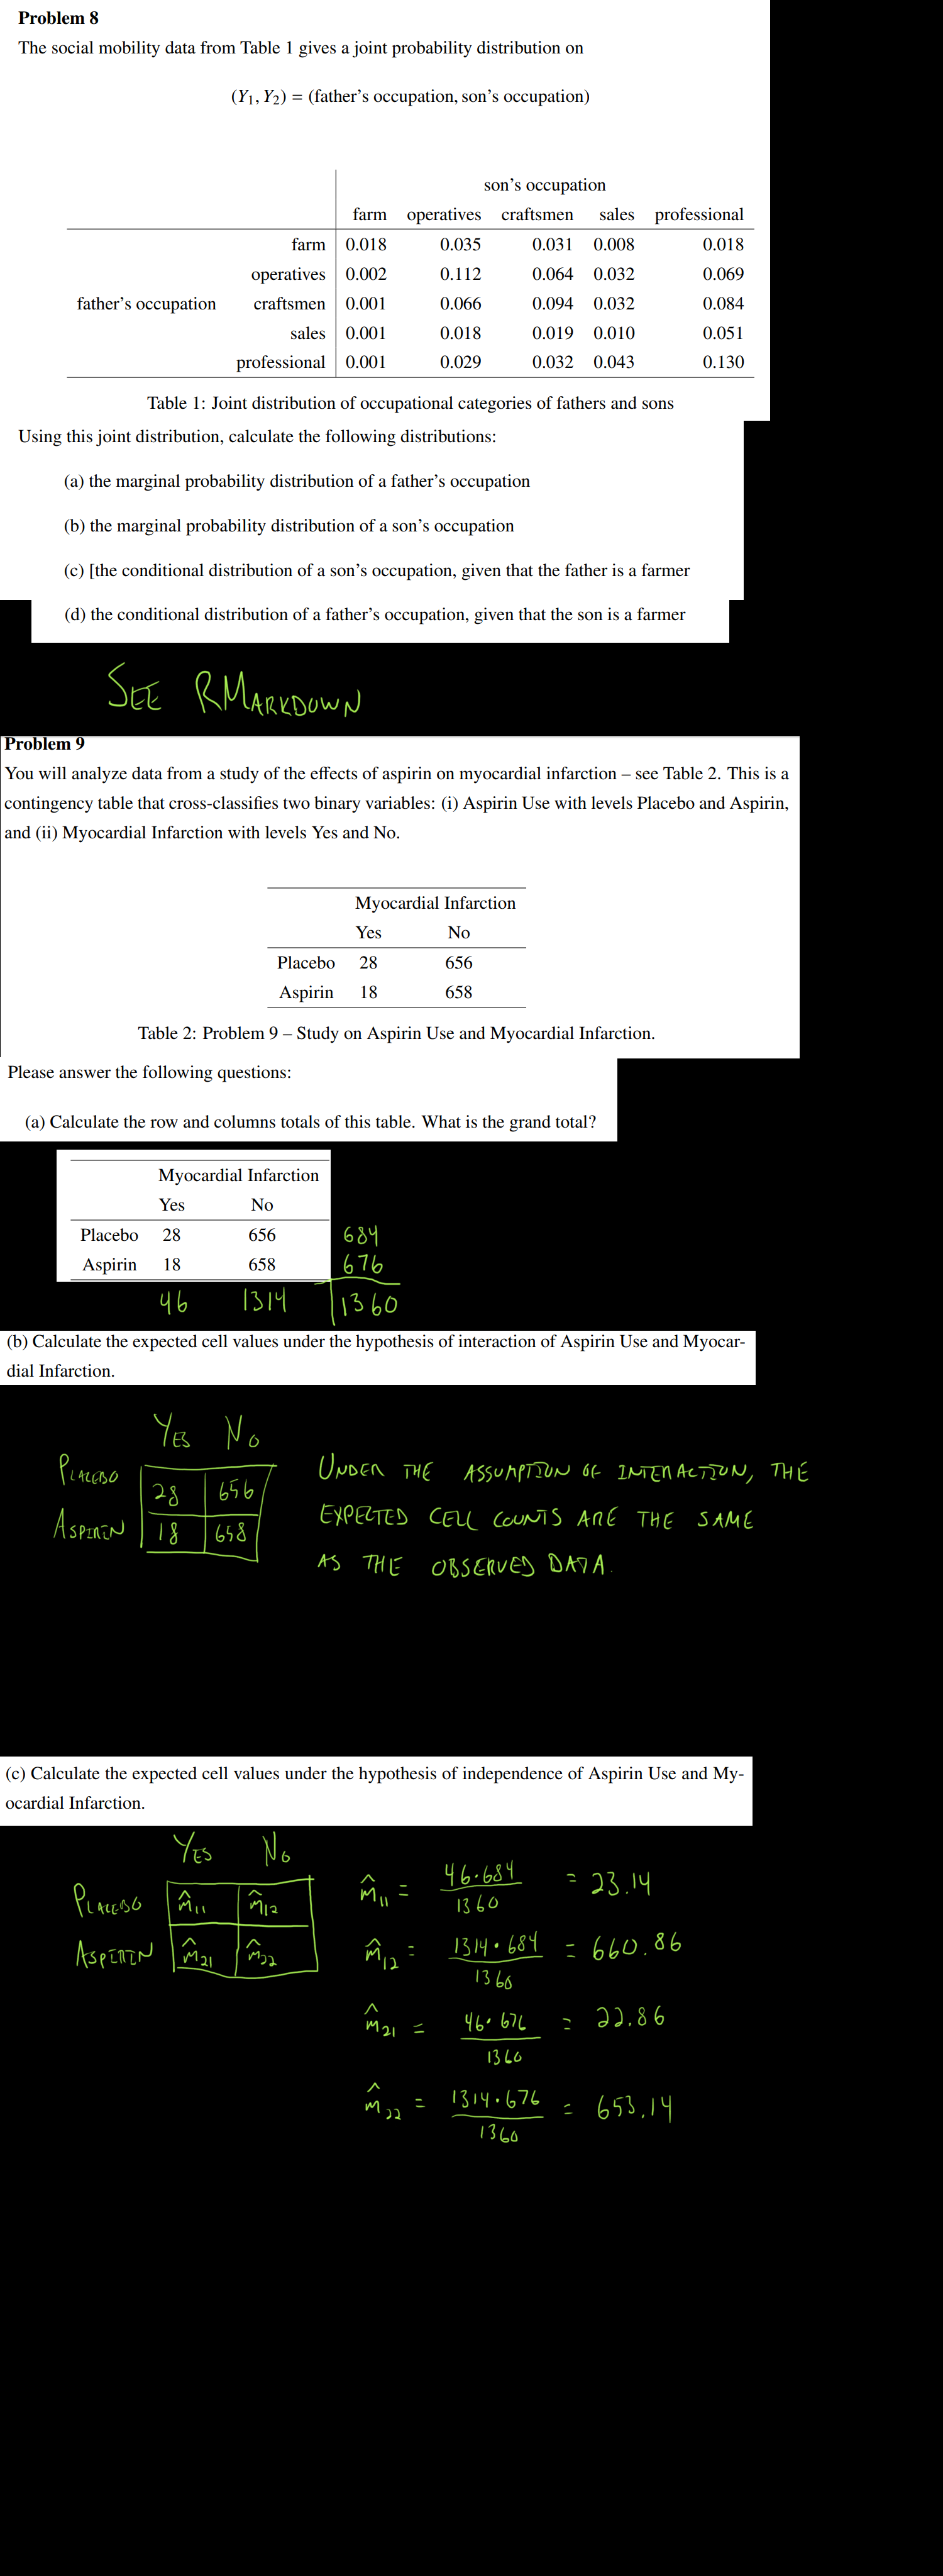 Problem 8
The social mobility data from Table 1 gives a joint probability distribution on
(Y₁, Y₂) = (father's occupation, son's occupation)
son's occupation
farm operatives craftsmen sales professional
farm 0.018 0.035 0.031 0.008 0.018
operatives 0.002 0.112 0.064 0.032 0.069
father's occupation craftsmen 0.001 0.066 0.094 0.032 0.084
sales 0.001 0.018 0.019 0.010 0.051
professional 0.001 0.029 0.032 0.043 0.130
Table 1: Joint distribution of occupational categories of fathers and sons
Using this joint distribution, calculate the following distributions:
(a) the marginal probability distribution of a father's occupation
(b) the marginal probability distribution of a son's occupation
(c) [the conditional distribution of a son's occupation, given that the father is a farmer
(d) the conditional distribution of a father's occupation, given that the son is a farmer
SEE RMARKDOWN
Problem 9
You will analyze data from a study of the effects of aspirin on myocardial infarction – see Table 2. This is a
contingency table that cross-classifies two binary variables: (i) Aspirin Use with levels Placebo and Aspirin,
and (ii) Myocardial Infarction with levels Yes and No.
Myocardial Infarction
Yes No
Placebo 28 656
Aspirin 18 658
Table 2: Problem 9 – Study on Aspirin Use and Myocardial Infarction.
Please answer the following questions:
(a) Calculate the row and columns totals of this table. What is the grand total?
Myocardial Infarction
Yes No
Placebo 28 656 684
Aspirin 18 658 676
46 1314 1360
(b) Calculate the expected cell values under the hypothesis of interaction of Aspirin Use and Myocar-
dial Infarction.
YES NO
PLACEBO 28 656
ASPIRIN 18 658
UNDER THE ASSUMPTION OF INTERACTION, THE
EXPECTED CELL COUNTS ARE THE SAME
AS THE OBSERVED DATA.
(c) Calculate the expected cell values under the hypothesis of independence of Aspirin Use and My-
ocardial Infarction.
YES NO
PLACEBO m̂₁₁ m̂₁₂
ASPIRIN m̂₂₁ m̂₂₂
m̂₁₁ = 46·684 / 1360 = 23.14
m̂₁₂ = 1314·684 / 1360 = 660.86
m̂₂₁ = 46·676 / 1360 = 22.86
m̂₂₂ = 1314·676 / 1360 = 653.14